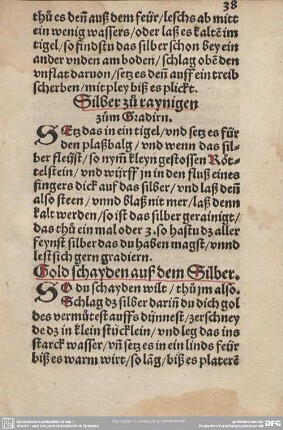 38
thů es deñ auß dem feür/leschs ab mitt
ein wenig wassers/oder laß es kaltẽ im
tigel/so findstu das silber schon bey ein
ander vnden am boden/schlag obẽ den
vnflat daruon/setz es deñ auff ein treib
scherben/mit pley biß es plickt.
Silber zů raynigen
zům Gradirn.
SEtz das in ein tigel/vnd setz es für
den plaßbalg/vnd wenn das sil-
ber fleyst/so nym̃ kleyn gestossen Röt-
telstein/vnd würff jn in den fluß eines
fingers dick auf das silber/vnd laß deñ
also steen/vnnd blaß nit mer/laß denn
kalt werden/so ist das silber gerainigt/
das thů ein mal oder 3. so hastu dz aller
feynst silber das du haben magst/vnnd
lest sich gern gradiern.
Gold schayden auf dem Silber.
SO du schayden wilt/thů jm also.
Schlag dz silber dariñ du dich gol
des vermůtest auffs dỹnnest/zerschney
de dz in klein stücklein/vnd leg das ins
starck wasser/vñ setz es in ein linds feür
biß es warm wirt/so lãg/biß es platerẽ